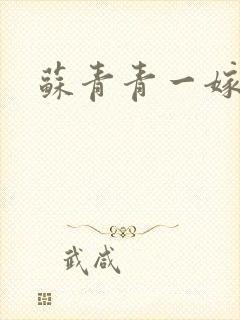 蘇青青一嫁
武咸